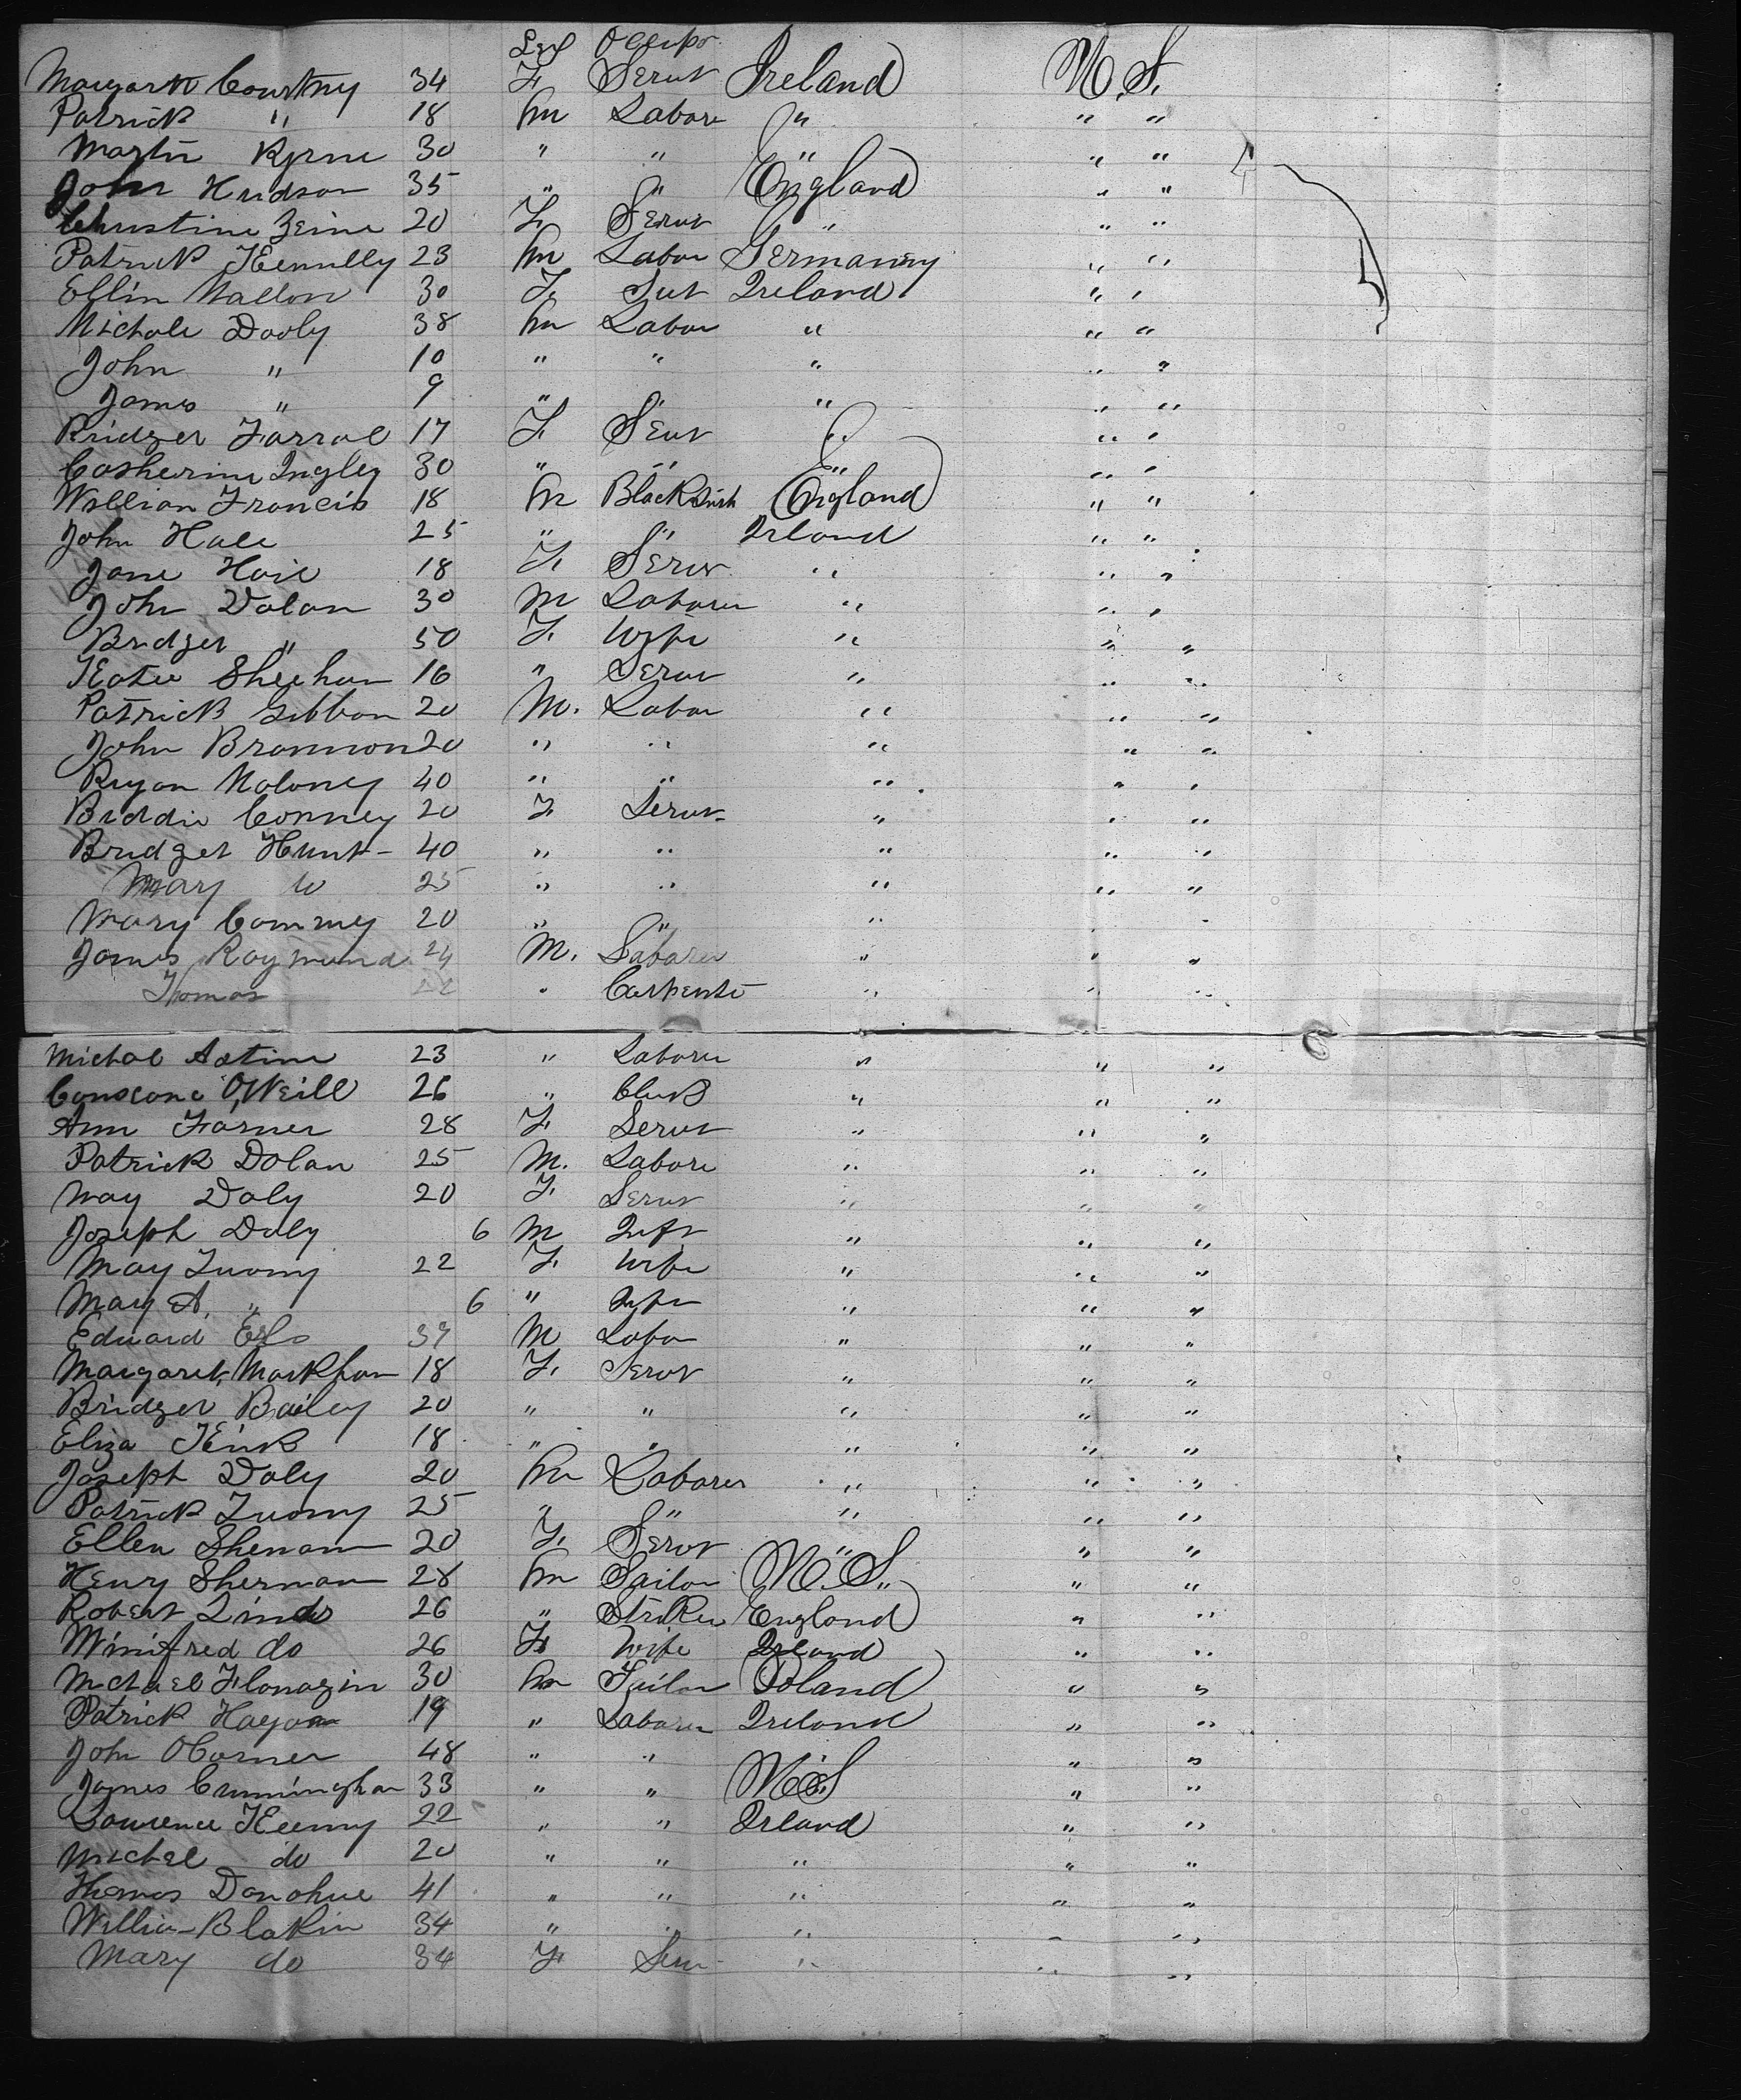 Sex Occupr
Margaret Courtny 34 F. Servt Ireland U.S.
Patrick " 18 M Labor " " "
Martin Byrne 30 " " " " "
John Hudson 35 " " England " "
Christine Zeine 20 F. Servt " " "
Patrick Kennelly 23 M Labor Germanny " "
Ellin Mallon 30 F. Sert Ireland " "
Michale Dooly 38 M Labor " " "
John " 10 " " " " "
James " 9 " " " " "
Bridget Farral 17 F. Sevt " " "
Catherine Ingley 30 " " " " "
William Francis 18 M Blacksmith England " "
John Hale 25 " " Irland " "
Jane Hail 18 F. Servt " " "
John Dolan 30 M Laborer " " "
Bridget " 50 F. Wife " " "
Katie Sheehan 16 " Servt " " "
Patrick Gibbon 20 M. Labor " " "
John Brannon 20 " " " " "
Bryan Maloney 40 " " " " "
Biddie Conney 20 F Servt " " "
Bridget Hunt 40 " " " " "
Mary do 25 " " " " "
Mary Commey 20 " " " "
James Raymund 24 M. Laborer " " "
Thomas 22 " Carpente " " "
Michal Astine 23 " Laborer " " "
O'Neill 26 " Clerk " " "
Ann Farner 28 F. Servt " " "
Patrick Dolan 25 M. Labore " " "
May Daly 20 F. Servt " " "
Joseph Daly 6 M Inft " " "
May Tuomy 22 F. Wife " " "
May A. " 6 " Infn " " "
Edward 37 M Labor " " "
Margaret Markham 18 F. Servt " " "
Bridget Bailey 20 " " " " "
Eliza Kirk 18 " " " " "
Joseph Daly 20 M Laborer " " "
Patrick Tuomy 25 " " " " "
Ellen Shenan 20 F. Servt " " "
Henry Sherman 28 M Sailor U.S. " "
Robert Linds 26 " Striker England " "
Winifred do 26 F. Wife Irland " "
Michael Flanagin 30 M Tailor Poland " "
Patrick Hayan 19 " Laborer Ireland " "
John OConner 48 " " " " "
James Cunningham 33 " " U.S " "
Lawrence Keemy 22 " " Irland " "
Michel do 20 " " " " "
Thomas Donohue 41 " " " " "
William Blakin 34 " " " " "
Mary do 34 F Serv " " "